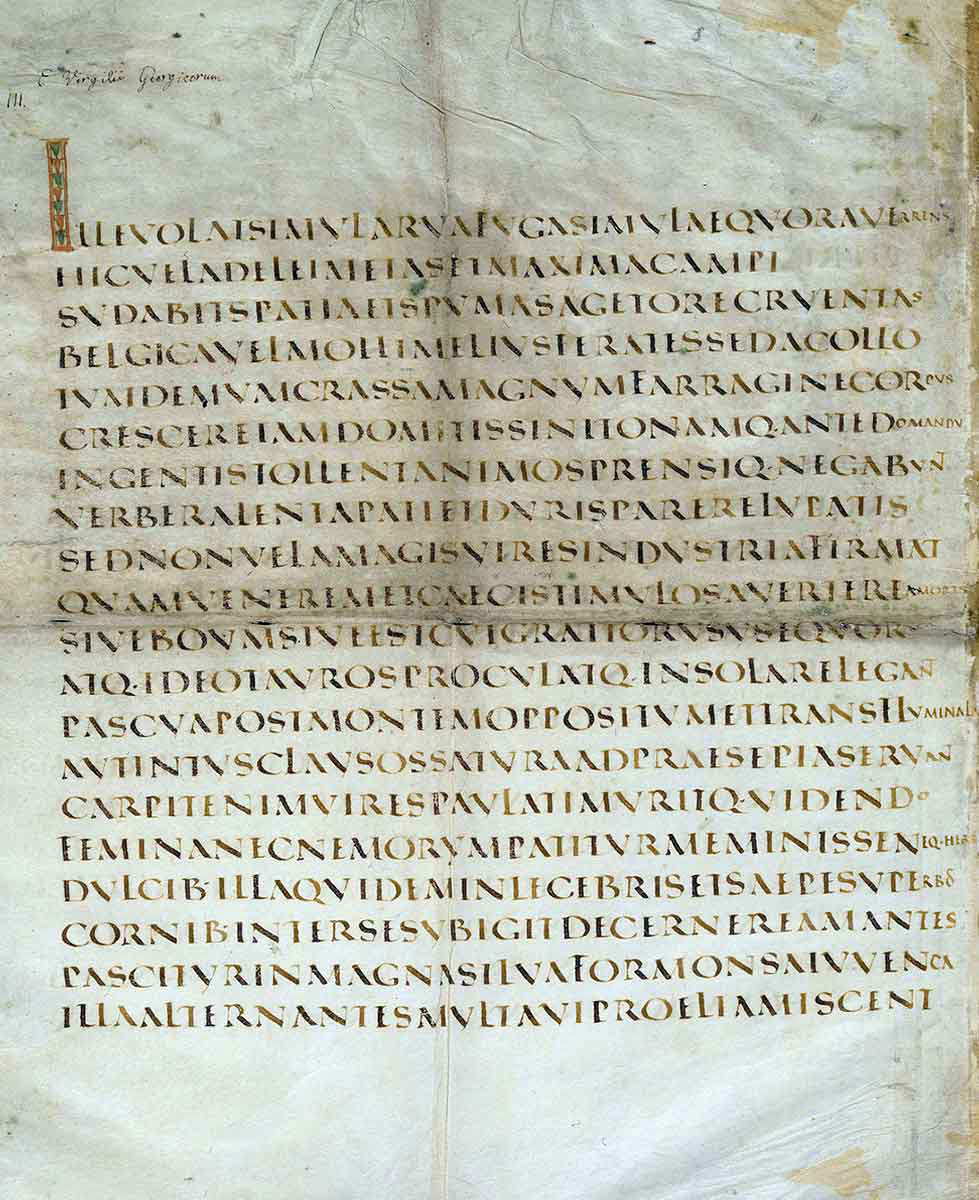 E Virgilii Georgicorum
III.
ILLEVOLATSIMVLARVAFVGASIMVLAEQVORAVERRENS
HICVELADELEIMETASETMAXIMACAMPI
SVDABITSPATIAETSPVMASAGETORECRVENTAS
BELGICAVELMOLLIMELIVSFERATESSEDACOLLO
TVMDEMVMCRASSAMAGNVMFARRAGINECORPVS
CRESCEREIAMDOMITISSINITONAMQ·ANTEDOMANDV
INGENTISTOLLENTANIMOSPRENSIQ·NEGABVNT
VERBERALENTAPATIETDVRISPARERELVPATIS
SEDNONVLLAMAGISVIRESINDVSTRIAFIRMAT
QVAMVENEREMETCAECISTIMVLOSAVERTEREAMORIS
SIVEBOVMSIVEESTCVIGRATIORVSVSEQVOR
ATQ·IDEOTAVROSPROCVLATQ·INSOLARELEGANT
PASCVAPOSTMONTEMOPPOSITVMETTRANSFLVMINALA
AVTINTVSCLAVSOSSATVRAADPRAESEPIASERVANT
CARPITENIMVIRESPAVLATIMVRITQ·VIDENDO
FEMINANECNEMORVMPATITVRMEMINISSENEQ·HER
DVLCIB·ILLAQVIDEMINLECEBRISETSAEPESVPERBOS
CORNIB·INTERSESVBIGITDECERNEREAMANTES
PASCITVRINMAGNASILVAFORMONSAIVVENCA
ILLAALTERNANTESMVLTAVIPROELIAMISCENT